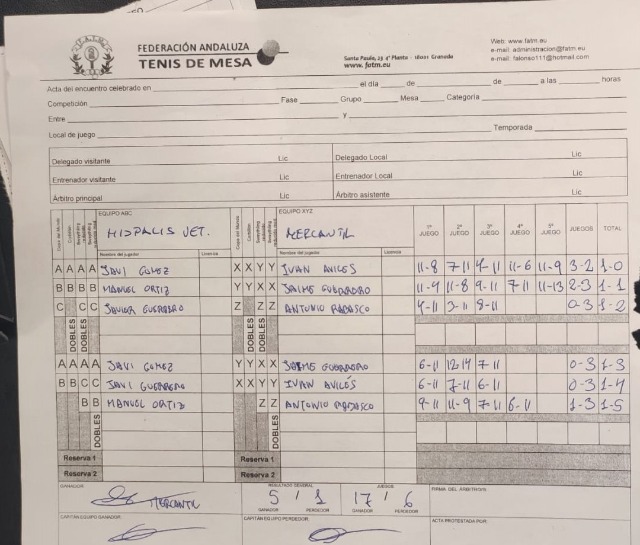 FEDERACIÓN ANDALUZA
TENIS DE MESA
Santa Paula, 23 2ª Planta - 18001 Granada
www.fatm.eu
Web: www.fatm.eu
e-mail: administracion@fatm.eu
e-mail: falonso111@hotmail.com
Acta del encuentro celebrado en el día de de a las horas
Competición Fase Grupo Mesa Categoría
Entre y
Local de juego Temporada
Delegado visitante Lic Delegado Local Lic
Entrenador visitante Lic Entrenador Local Lic
Árbitro principal Lic Árbitro asistente Lic
EQUIPO ABC HISPALIS VET. EQUIPO XYZ MERCANTIL 1º JUEGO 2º JUEGO 3º JUEGO 4º JUEGO 5º JUEGO JUEGOS TOTAL
Nombre del jugador Licencia Nombre del jugador Licencia
A A A A JAVI GOMEZ X X Y Y IVAN AVILES 11-8 7-11 4-11 11-6 11-9 3-2 1-0
B B B B MANUEL ORTIZ Y Y X X JAIME GUERRERO 11-9 11-8 9-11 7-11 11-13 2-3 1-1
C C C JAVIER GUERRERO Z Z Z ANTONIO RABASCO 4-11 3-11 8-11 0-3 1-2
DOBLES DOBLES DOBLES
A A A A JAVI GOMEZ Y Y X X JAIME GUERRERO 6-11 12-14 7-11 0-3 1-3
B B C C JAVI GUERRERO X X Y Y IVAN AVILES 6-11 7-11 6-11 0-3 1-4
B B MANUEL ORTIZ Z Z ANTONIO RABASCO 9-11 11-9 7-11 6-11 1-3 1-5
DOBLES DOBLES
Reserva 1 Reserva 1
Reserva 2 Reserva 2
GANADOR MERCANTIL RESULTADO GENERAL 5 / 1 JUEGOS 17 / 6 FIRMA DEL ARBITRO/S:
GANADOR PERDEDOR GANADOR PERDEDOR
CAPITAN EQUIPO GANADOR: CAPITAN EQUIPO PERDEDOR: ACTA PROTESTADA POR: